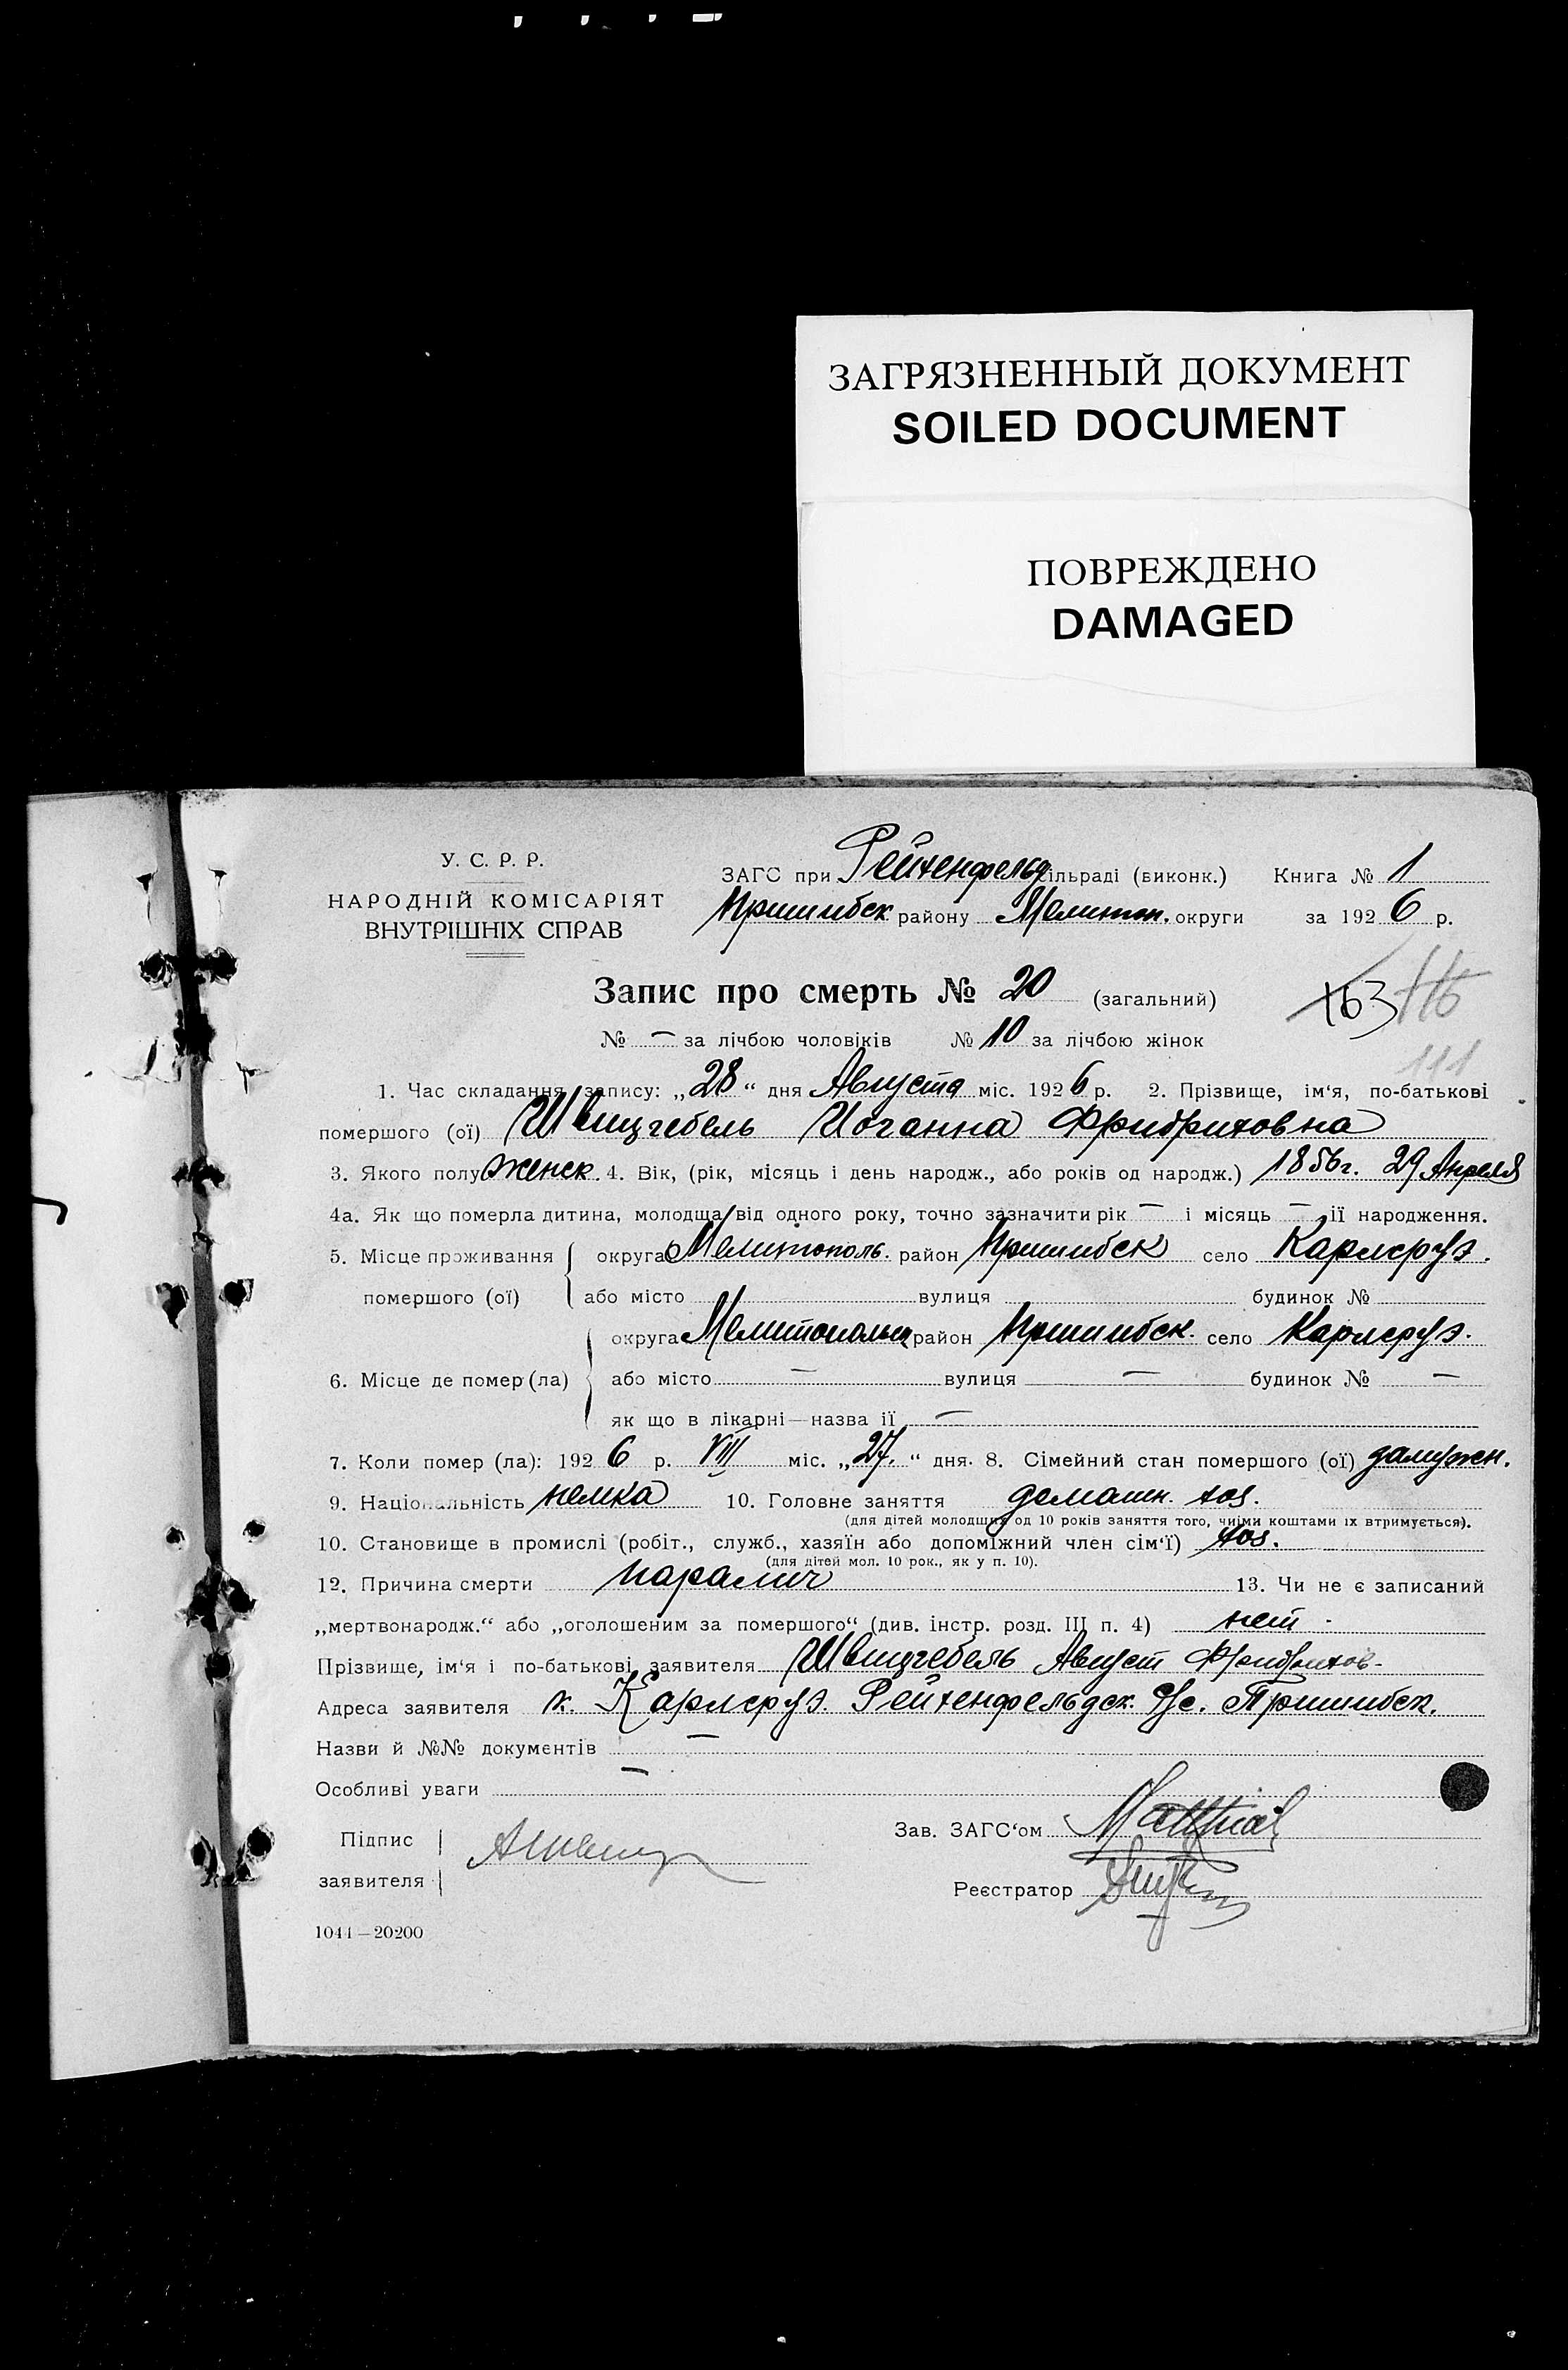 ЗАГРЯЗНЕННЫЙ ДОКУМЕНТ
SOILED DOCUMENT
ПОВРЕЖДЕНО
DAMAGED
У. С. Р. Р.
НАРОДНІЙ КОМІСАРІЯТ
ВНУТРІШНІХ СПРАВ
ЗАГС при Рейхенфельд сільраді (виконк.) Книга № 1
Пришибск району Мелитоп. округи за 1926 р.
Запис про смерть № 20 (загальний) 163 116
№ — за лічбою чоловіків № 10 за лічбою жінок
111
1. Час складання запису: „28“ дня Августа міс. 1926 р. 2. Прізвище, ім‘я, по-батькові
помершого (ої) Швицгебель Иоганна Фридриховна
3. Якого полу женск. 4. Вік, (рік, місяць і день народж., або років од народж.) 1856г. 29 Апреля
4а. Як що померла дитина, молодща від одного року, точно зазначити рік — і місяць — її народження.
5. Місце проживання округа Мелитополь. район Пришибск село Карлсруэ.
помершого (ої) або місто вулиця будинок №
округа Мелитопольск район Пришибск. село Карлсруэ.
6. Місце де помер (ла) або місто — вулиця — будинок № —
як що в лікарні—назва її —
7. Коли помер (ла): 1926 р. VIII міс. „27.“ дня. 8. Сімейний стан помершого (ої) замужн.
9. Національність немка 10. Головне заняття домашн. хоз.
(для дітей молодших од 10 років заняття того, чиїми коштами їх втримується).
10. Становище в промислі (робіт., служб., хазяїн або допоміжний член сім‘ї) хоз.
(для дітей мол. 10 рок., як у п. 10).
12. Причина смерти паралич 13. Чи не є записаний
„мертвонародж.“ або „оголошеним за помершого“ (див. інстр. розд. III п. 4) нет
Прізвище, ім‘я і по-батькові заявителя Швицгебель Август Фридрихов-
Адреса заявителя к. Карлсруэ. Рейхенфельдск. с/с. Пришибск.
Назви й №№ документів —
Особливі уваги —
Підпис
заявителя
Зав. ЗАГС‘ом
Реєстратор
1044—20200